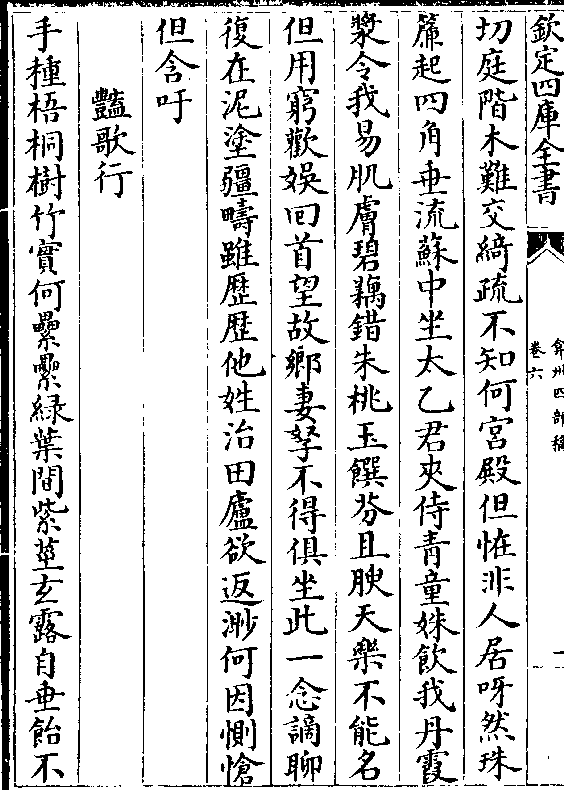 欽定四庫全書
弇州四部稿
卷六
切庭階木難交綺疏不知何宮殿但恠非人居呀然珠
簾起四角垂流蘇中坐太乙君夾侍青童姝飲我丹霞
漿令我易肌膚碧藕錯朱桃玉饌芬且腴天樂不能名
但用窮歡娛回首望故鄉妻孥不得俱坐此一念謫聊
復在泥塗疆疇雖歴歴他姓治田廬欲返渺何因惻愴
但含吁
豔歌行
手種梧桐樹竹實何纍纍緑葉間紫莖玄露自垂飴不